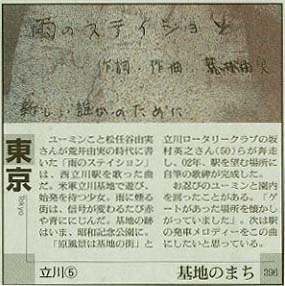 雨のステイション
作詞・作曲 荒井由実
新しい誰かのために
東京
Tokyo
ユーミンこと松任谷由実
さんが荒井由実の時代に書
いた「雨のステイション」
は、西立川駅を歌った曲
だ。米軍立川基地で遊び、
始発を待つ少女。雨に煙る
街は、信号が変わるたび赤
や青ににじんだ。基地の跡
はいま、昭和記念公園に。
「原風景は基地の街」と
立川ロータリークラブの坂
村英之さん(50)らが奔走
し、02年、駅を望む場所に
自筆の歌碑が完成した。
お忍びのユーミンと園内
を回ったことがある。「ゲ
ートがあった場所を懐かし
がっていました」。次は駅
の発車メロディーをこの曲
にしたいと思っている。
立川⑤
基地のまち
396